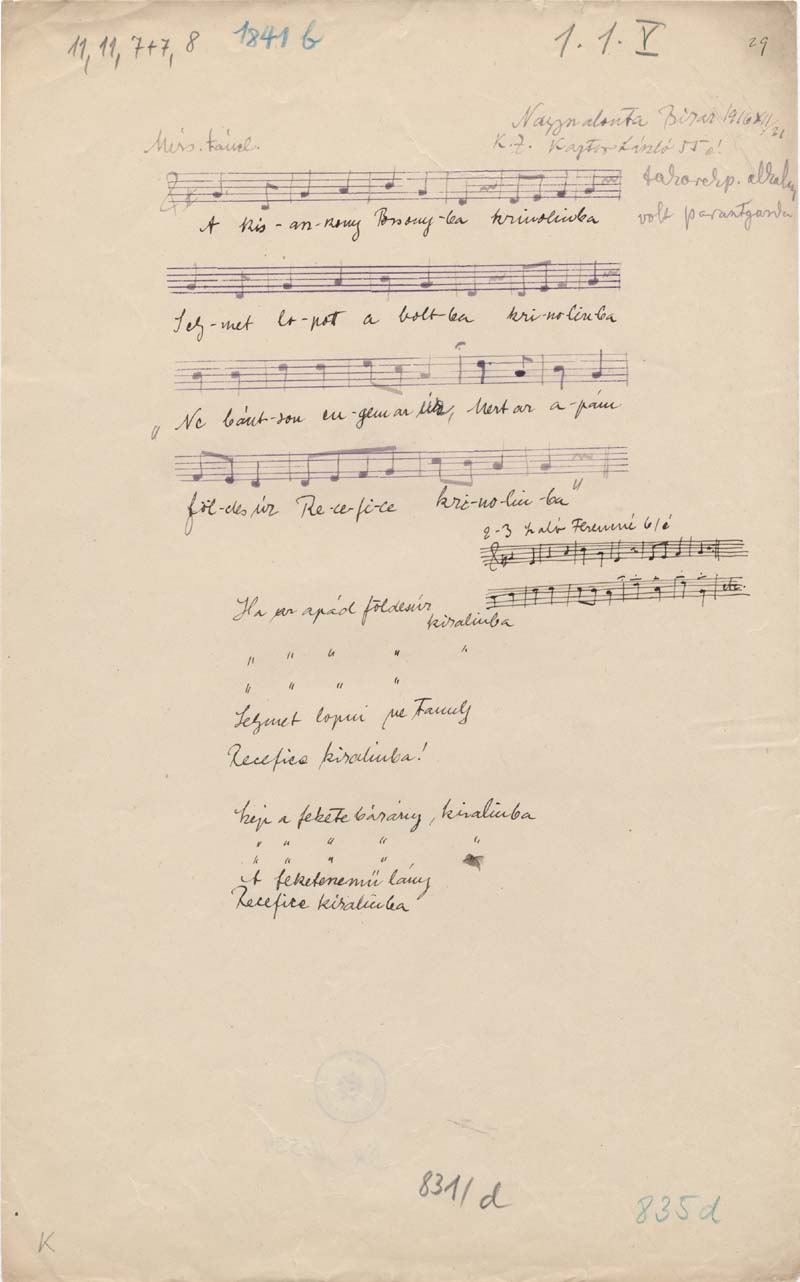 11, 11, 7+7, 8
1841 b
1. 1. V
29
Nagyszalonta Bihar 1916 XII/21
Mérs. táncl.
K. Z. Kaptor László 55 é!
takarékp. alkalm.
volt
A kis-asz-szony Pozsony-ba krinolinba
Sely-met lo-pott a bolt-ba kri-no-linba
"Ne bánt-son en-gem az úr, Mert az a-pám
föl-des úr Re-ce-fi-ce kri-no-lin-ba"
2-3 Szabó Ferencné 61 é
etc.
Ha az apád földesúr
kiralinba
" " " " "
" " " "
Selymet lopni ne tanulj
Recefice kiralinba!
Szép a fekete bárány, kiralinba
" " " " "
" " " "
A feketeszemű lány
Recefice kiralinba
831/d
835d
K